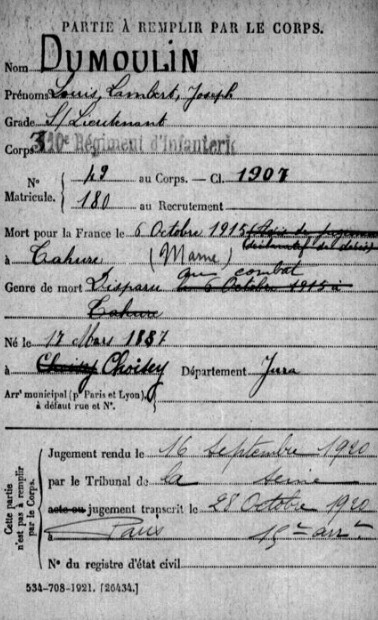 PARTIE À REMPLIR PAR LE CORPS.
Nom DUMOULIN
Prénoms Louis, Lambert, Joseph
Grade S/ Lieutenant
Corps 310e Régiment d'Infanterie
N° 49 au Corps. — Cl. 1907
Matricule. 180 au Recrutement
Mort pour la France le 6 Octobre 1915 (Avis de jugement
déclaratif de décès)
à Tahure (Marne)
au combat
Genre de mort Disparu le 6 Octobre 1915 à
Tahure
Né le 17 Mars 1887
à Choisey Département Jura
Arrt municipal (pr Paris et Lyon),
à défaut rue et N°.
Cette partie
n'est pas à remplir
par le Corps.
Jugement rendu le 16 septembre 1920
par le Tribunal de la Seine
acte ou jugement transcrit le 28 Octobre 1920
à Paris 15me arrt
N° du registre d'état civil
534-708-1921. [26434.]